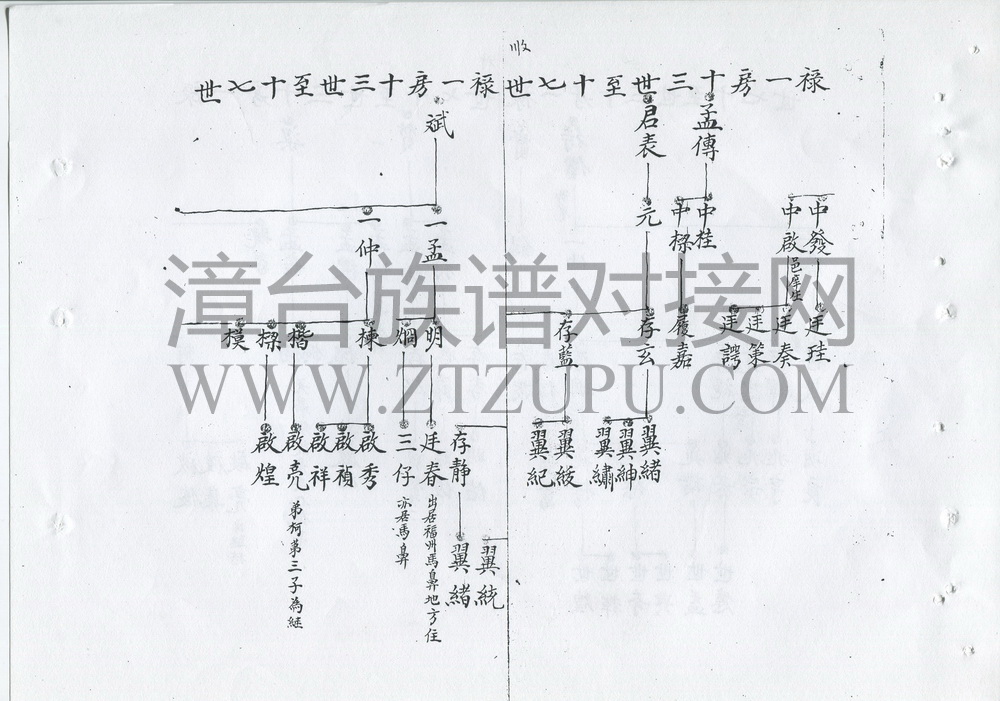 禄一房十三世至十七世
孟傳
君表
中發
中啟 邑庠生
中桂
中樑
元
廷珪
廷奏
廷策
廷諤
履嘉
存玄
存藍
翼緒
翼紳
翼繡
翼綏
翼紀
禄一房十三世至十七世
斌
一孟
一仲
明
烱
棟
楷
樑
模
存静
廷春 出居福州馬鼻地方住
三仔 亦居馬鼻
啟秀
啟禎
啟祥
啟亮 弟柯第三子為継
啟煌
翼統
翼緒
漳台族谱对接网
WWW.ZTZUPU.COM